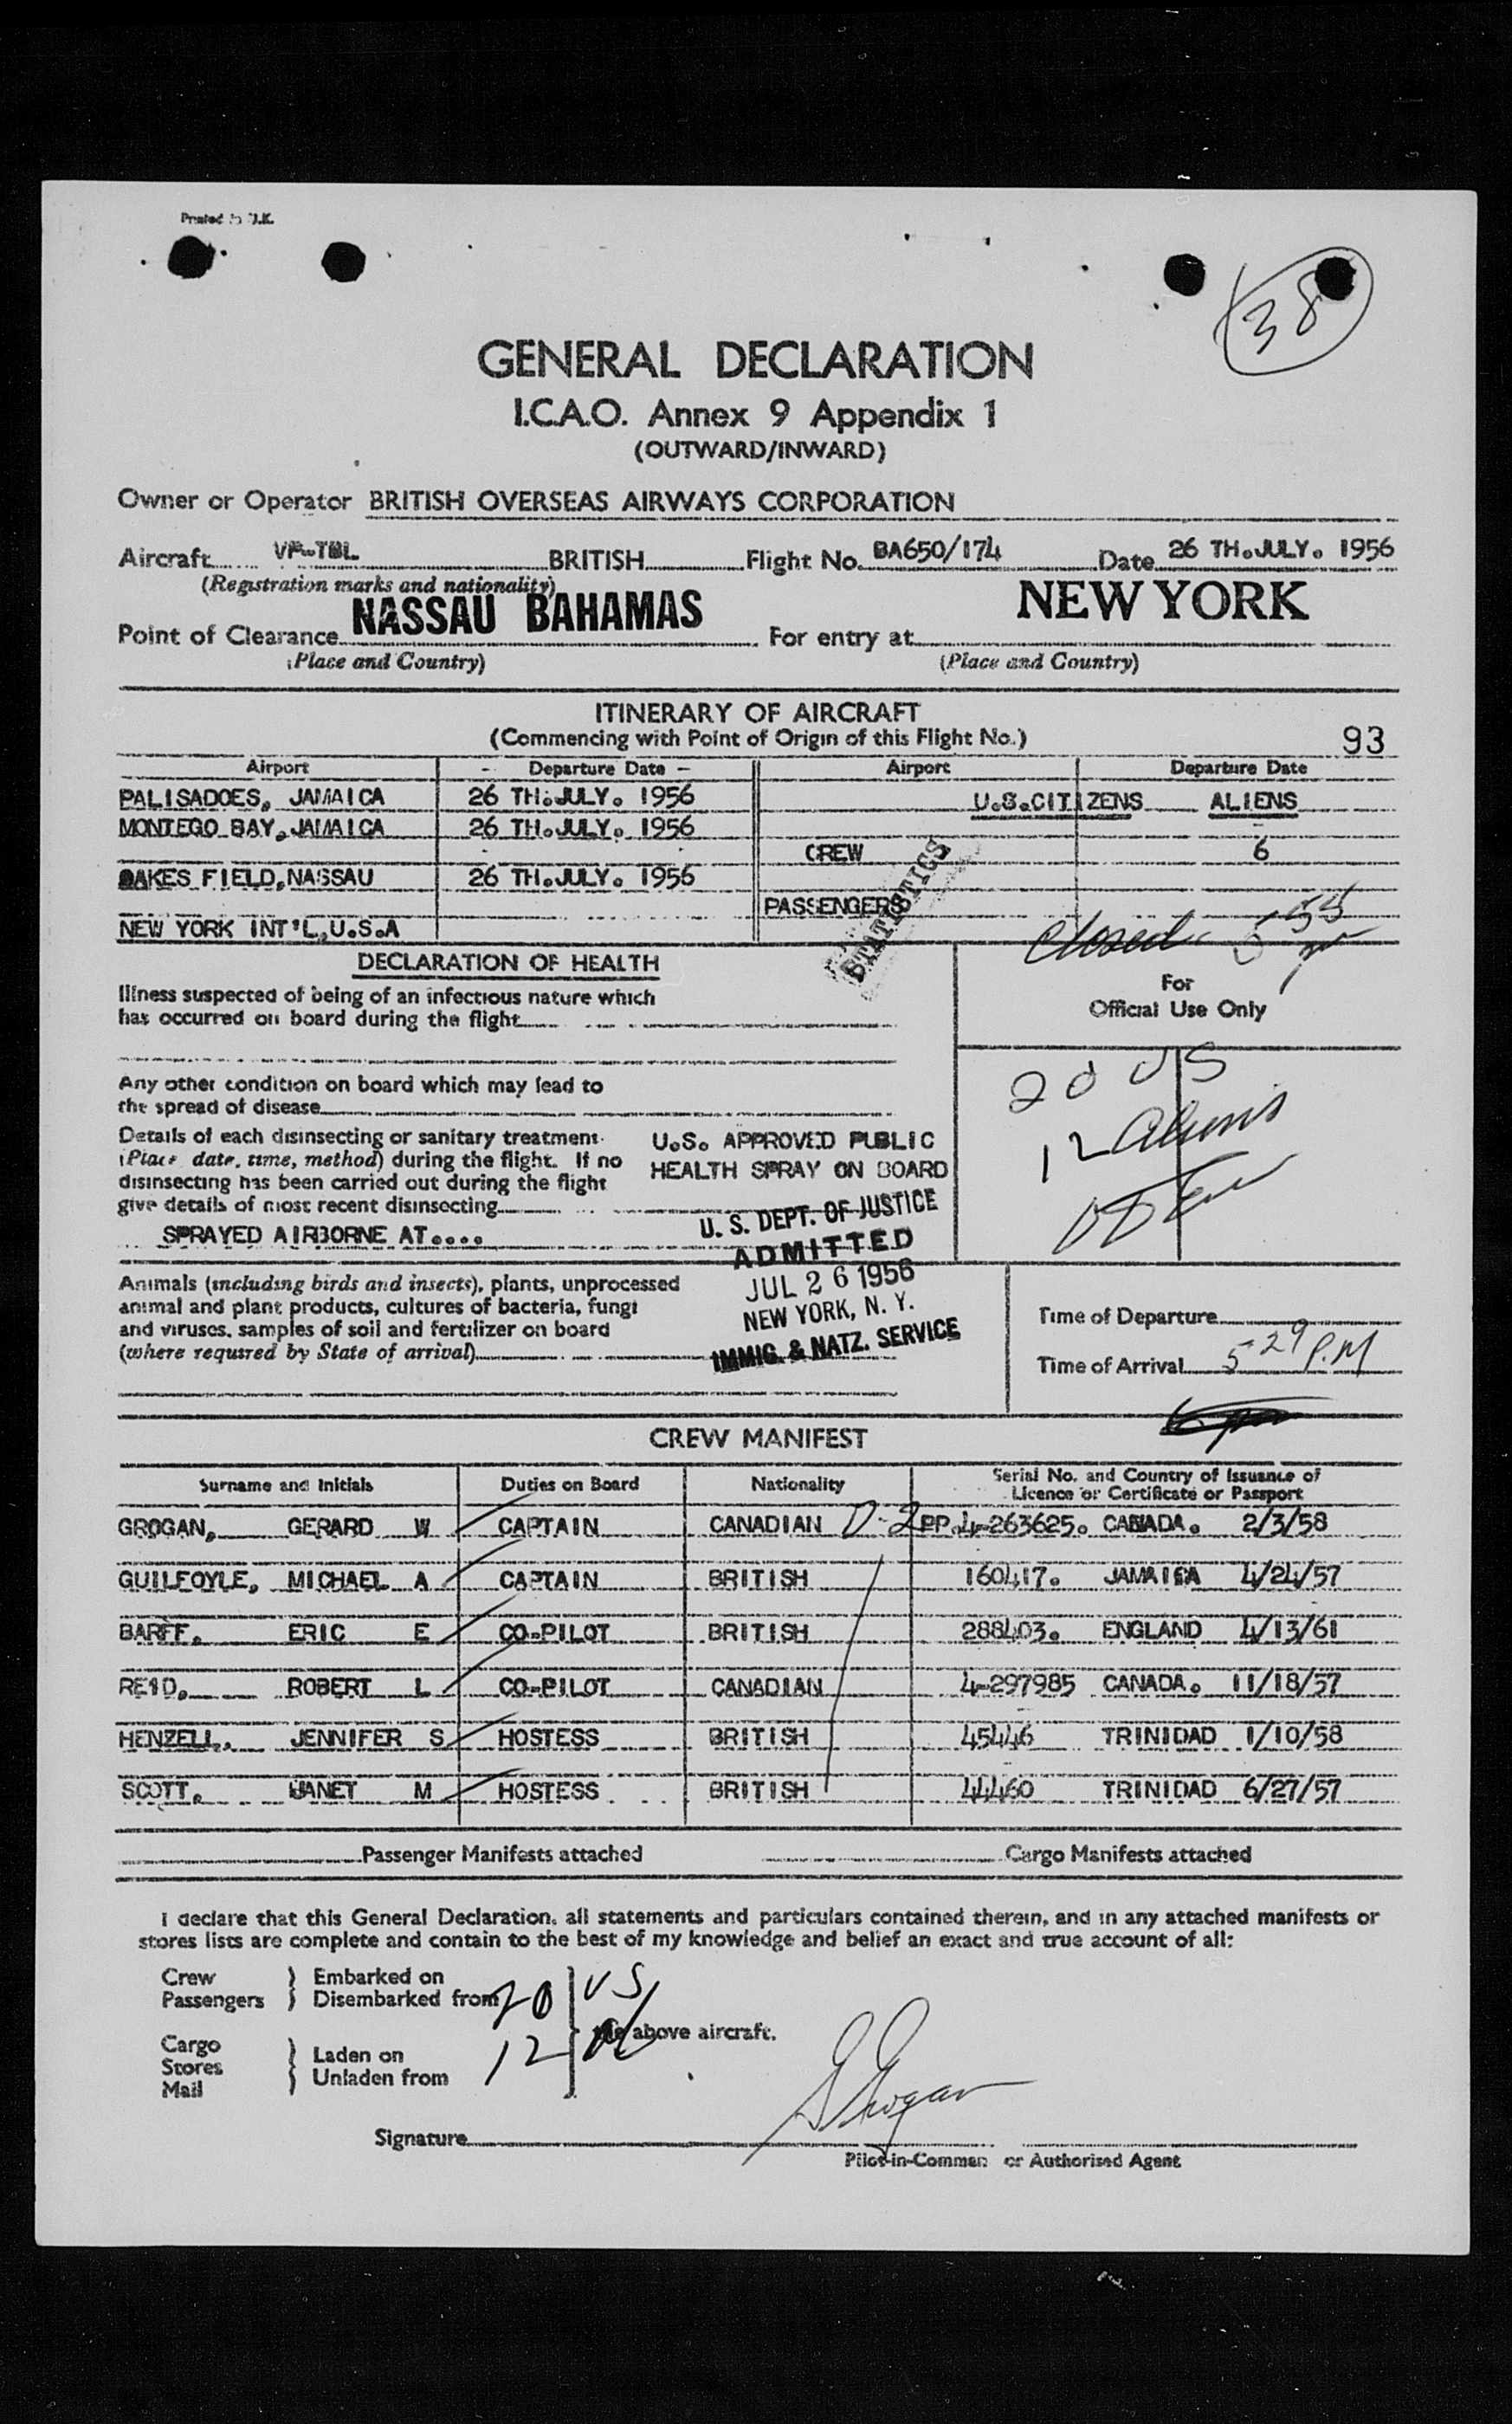 Printed in U.K.
38
GENERAL DECLARATION
I.C.A.O. Annex 9 Appendix 1
(OUTWARD/INWARD)
Owner or Operator BRITISH OVERSEAS AIRWAYS CORPORATION
Aircraft VP-TBL BRITISH Flight No. BA650/174 Date 26 TH.JULY. 1956
(Registration marks and nationality)
Point of Clearance NASSAU BAHAMAS For entry at NEW YORK
(Place and Country) (Place and Country)
ITINERARY OF AIRCRAFT
(Commencing with Point of Origin of this Flight No.) 93
Airport Departure Date Airport Departure Date
PALISADOES, JAMAICA 26 TH.JULY. 1956 U.S.CITIZENS ALIENS
MONTEGO BAY, JAMAICA 26 TH.JULY. 1956
CREW 6
OAKES FIELD, NASSAU 26 TH.JULY. 1956
PASSENGERS
STATISTICS
NEW YORK INT'L, U.S.A
closed 5 55 pm
DECLARATION OF HEALTH
Illness suspected of being of an infectious nature which
has occurred on board during the flight
For
Official Use Only
Any other condition on board which may lead to
the spread of disease
20 US
12 Aliens
Details of each disinsecting or sanitary treatment
(Place, date, time, method) during the flight. If no
disinsecting has been carried out during the flight
give details of most recent disinsecting
U.S. APPROVED PUBLIC
HEALTH SPRAY ON BOARD
SPRAYED AIRBORNE AT....
U. S. DEPT. OF JUSTICE
ADMITTED
JUL 26 1956
NEW YORK, N. Y.
IMMIG. & NATZ. SERVICE
Animals (including birds and insects), plants, unprocessed
animal and plant products, cultures of bacteria, fungi
and viruses, samples of soil and fertilizer on board
(where required by State of arrival)
Time of Departure
Time of Arrival 5 29 P.M
CREW MANIFEST
Surname and Initials Duties on Board Nationality Serial No. and Country of Issuance of
Licence or Certificate or Passport
GROGAN, GERARD W CAPTAIN CANADIAN D-2 PP.4-263625. CANADA. 2/3/58
GUILFOYLE, MICHAEL A CAPTAIN BRITISH 160417. JAMAICA 4/24/57
BARFF. ERIC E CO-PILOT BRITISH 288403. ENGLAND 4/13/61
REID. ROBERT L CO-PILOT CANADIAN 4-297985 CANADA. 11/18/57
HENZELL. JENNIFER S HOSTESS BRITISH 45446 TRINIDAD 1/10/58
SCOTT. JANET M HOSTESS BRITISH 44460 TRINIDAD 6/27/57
Passenger Manifests attached Cargo Manifests attached
I declare that this General Declaration, all statements and particulars contained therein, and in any attached manifests or
stores lists are complete and contain to the best of my knowledge and belief an exact and true account of all:
Crew Embarked on
Passengers Disembarked from 20 US
the above aircraft.
Cargo Laden on 12 al
Stores Unladen from
Mail
Signature G Grogan
Pilot-in-Comman or Authorised Agent